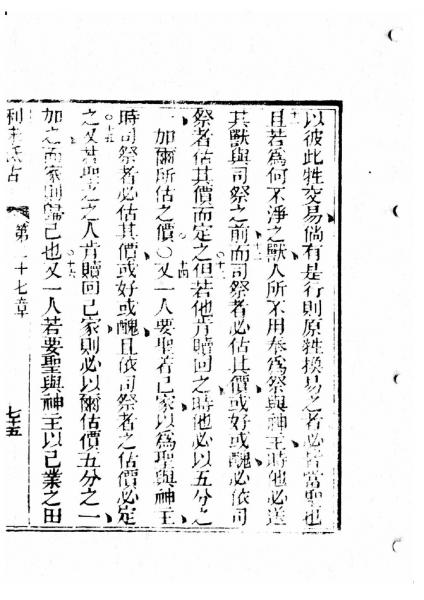 以彼此牲交易倘有是行則原牲換易之者必皆當聖也
十一且若爲何不淨之獸人所不用奉爲祭與神主時他必送
其獸與司祭之前十二而司祭者必估其價或好或醜必依司
祭者估其價而定之十三但若他肯贖回之時他必以五分之
一加爾所估之價〇十四又一人要聖着己家以爲聖與神主
時司祭者必估其價或好或醜且依司祭者之估價必定
之十五又若聖之之人肯贖回己家則必以爾估價五分之一
加之而家則歸己也十六又一人若要聖與神主以己業之田
利未氏古 第二十七章 七十五